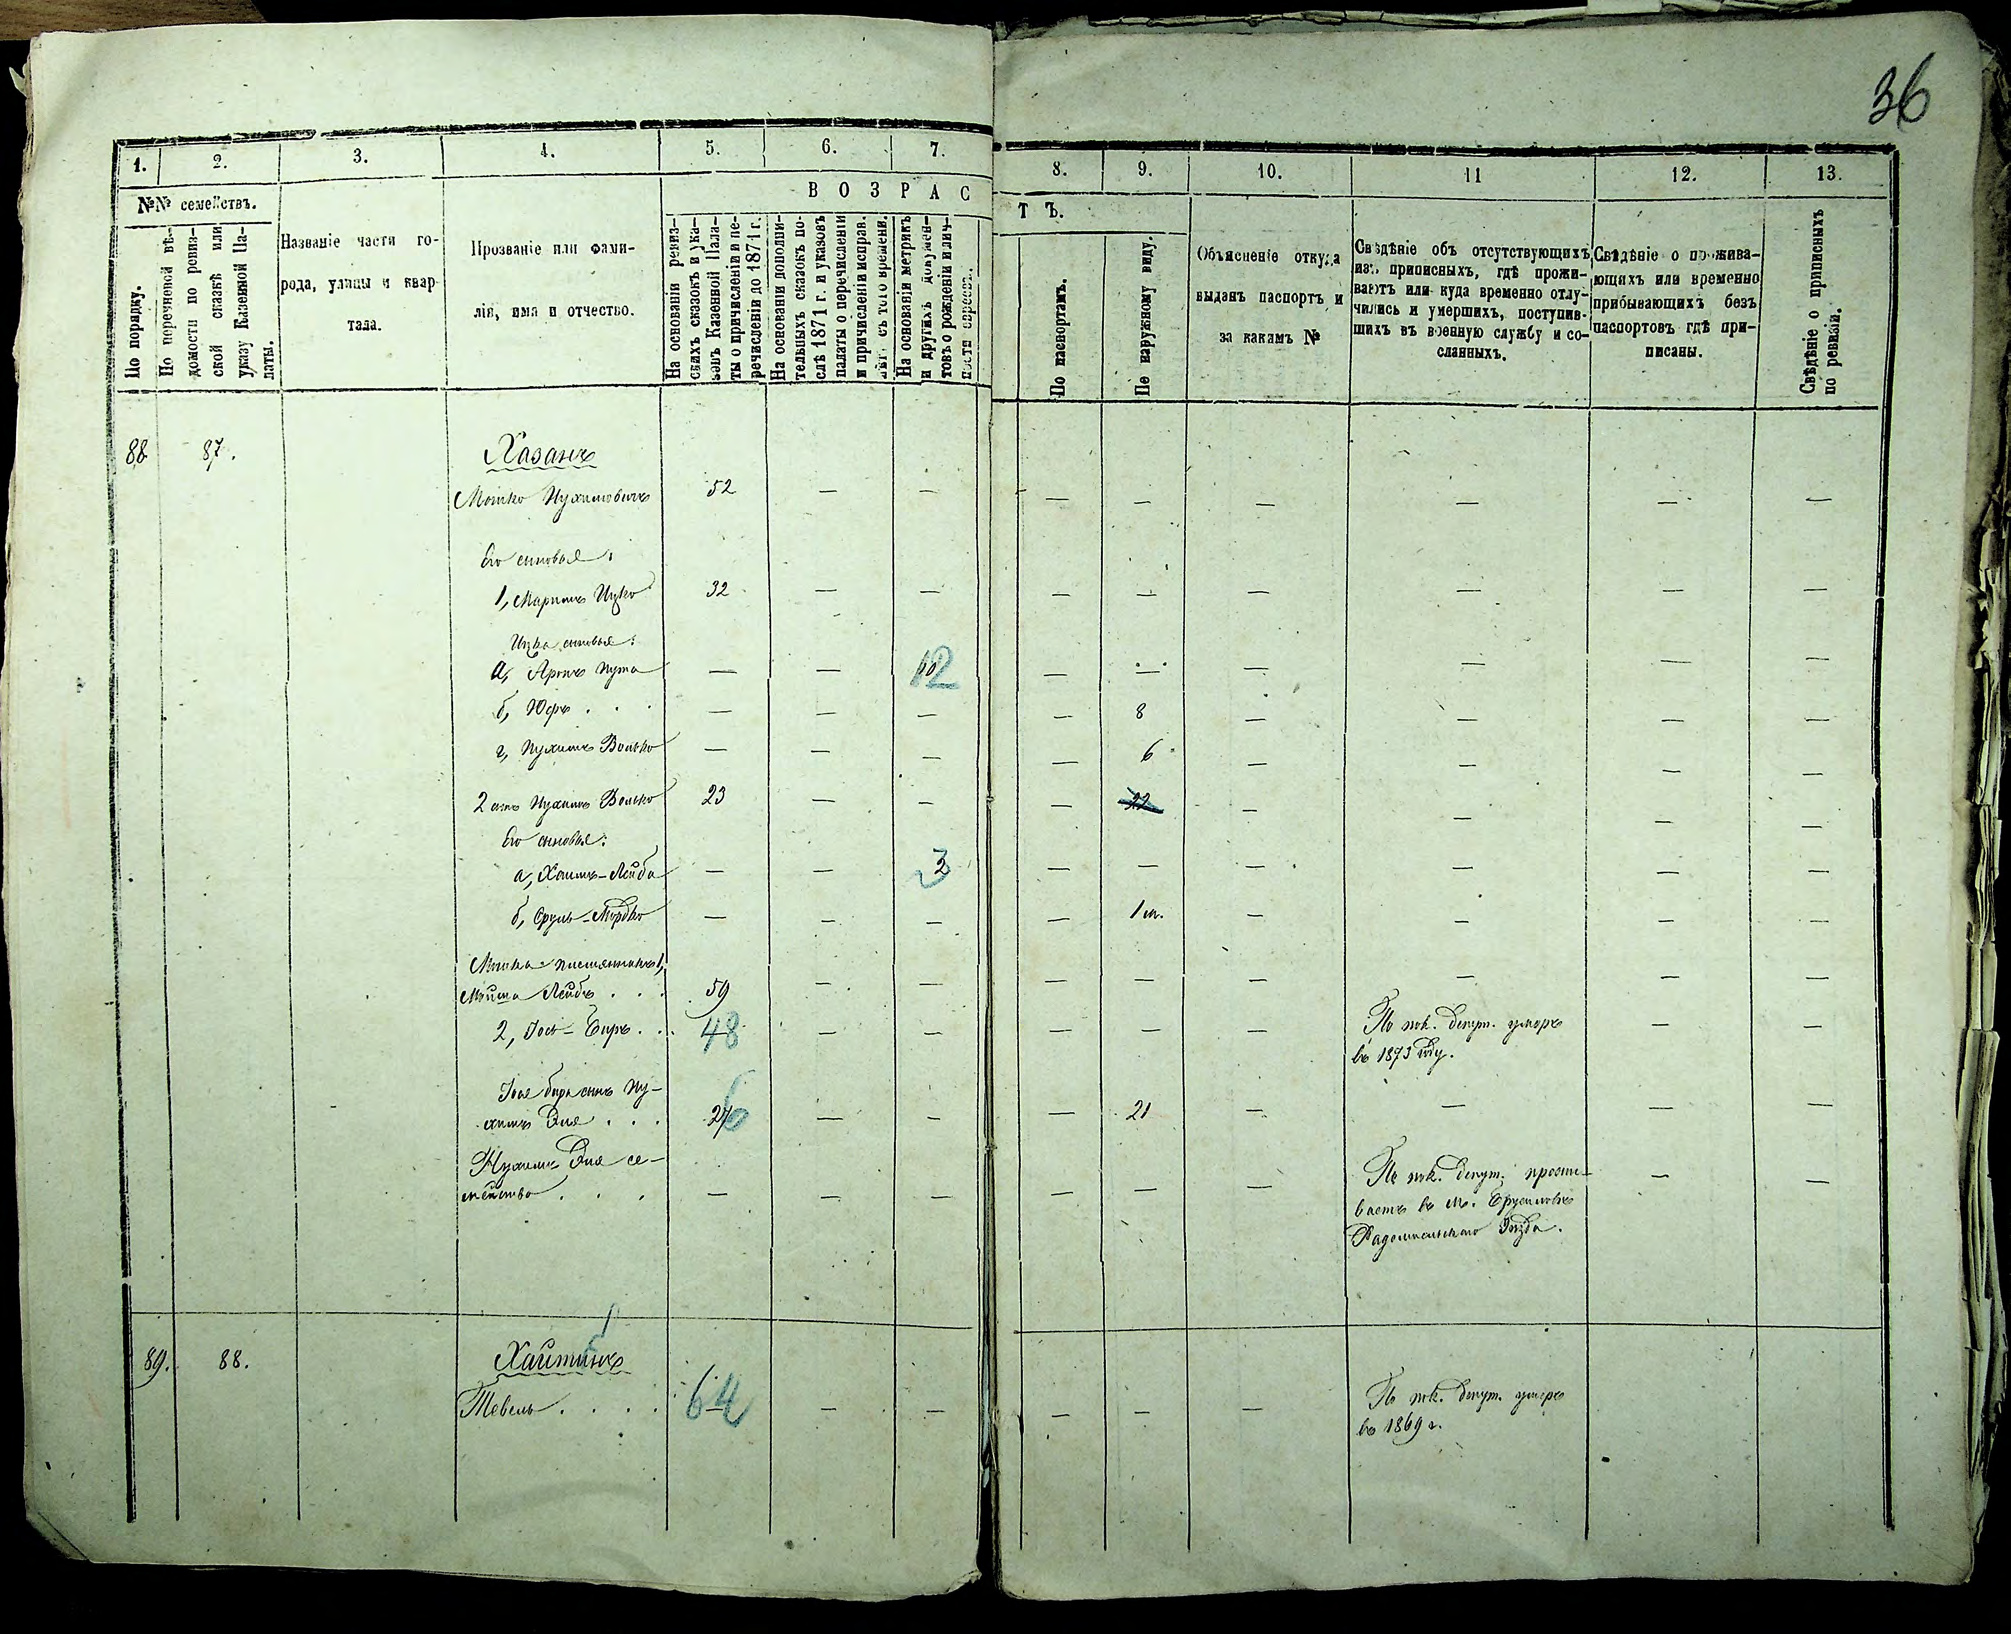 36
1. 2. 3. 4. 5. 6. 7. 8. 9. 10. 11 12. 13.
№№ семействъ.
ВОЗРАС
ТЪ.
По порядку.
По перечневой вѣ-
домости по ревиз-
ской сказкѣ или
указу Казенной Па-
латы.
Названіе части го-
рода, улицы и квар
тала.
Прозваніе или фами-
лія, имя и отчество.
На основаніи ревиз-
скихъ сказокъ и ука-
зовъ Казенной Пала-
ты о причисленіи и пе-
речисленіи до 1871 г.
На основаніи дополни-
тельныхъ сказокъ по-
слѣ 1871 г. и указовъ
палаты о перечисленіи
и причисленіи исправ.
лѣт. съ того времени.
На основаніи метрикъ
и другихъ докумен-
товъ о рожденіи и лич-
ности евреевъ.
По паспортамъ.
По наружному виду.
Объясненіе откуда
выданъ паспортъ и
за какимъ №
Свѣдѣніе объ отсутствующихъ
изъ приписныхъ, гдѣ прожи-
ваютъ или куда временно отлу-
чились и умершихъ, поступив-
шихъ въ военную службу и со-
сланныхъ.
Свѣдѣніе о прожива-
ющихъ или временно
прибывающихъ безъ
паспортовъ гдѣ при-
писаны.
Свѣдѣніе о приписныхъ
по ревизіи.
88 87. Хазанъ
Мошко Нухимовичъ 52 — — — — — — — —
Его сыновья:
1, Ицко 32 — — — — — — — —
Ицка сыновья:
а, Аронъ Нута — — 12 — — — — —
б, — — — — 8 — — — —
г, Нухимъ Волько — — — — 6 — — — —
2 Нухимъ Волько 23 — — — 22 — — — —
Его сыновья:
а, Хаимъ-Лейба — — 3 — — — — — —
б, Сруль-Мордко — — — — 1 м. — — — —
Мошка племянники 1,
Лейбъ . . . 59 — — — — — — — —
2, Іось-Беръ . . . 48 — — — — — По пок. депут. умеръ — —
въ 1873 году.
сынъ Ну-
химъ Эля . . . 26 — — — 21 — — — —
Нухима Эля се-
мейство . . . — — — — — — По пок. депут. прожи- — —
ваетъ въ м. Брусиловѣ
Радомысльскаго уѣзда.
89. 88. Хайтинъ
Тевель . . . . 64 — — — — — По пок. депут. умеръ
въ 1869 г.